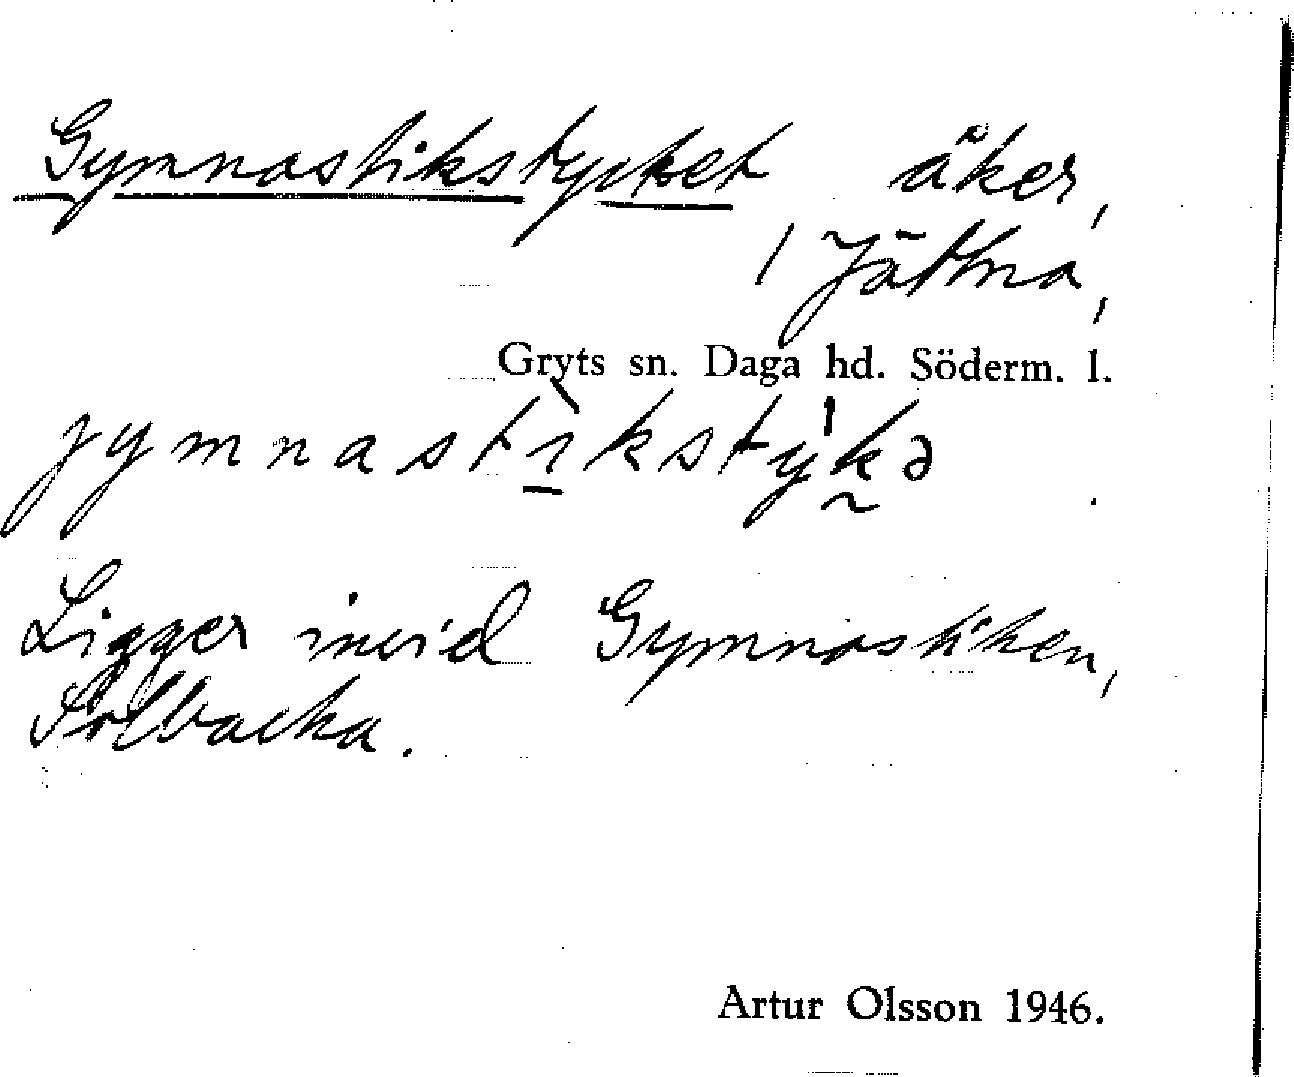 Gymnastikstycket åker,
/ Jättna,
Gryts sn. Daga hd. Söderm. l.
jymnastìkstýkə
Ligger invid Gymnastiken,
Solbacka.
Artur Olsson 1946.